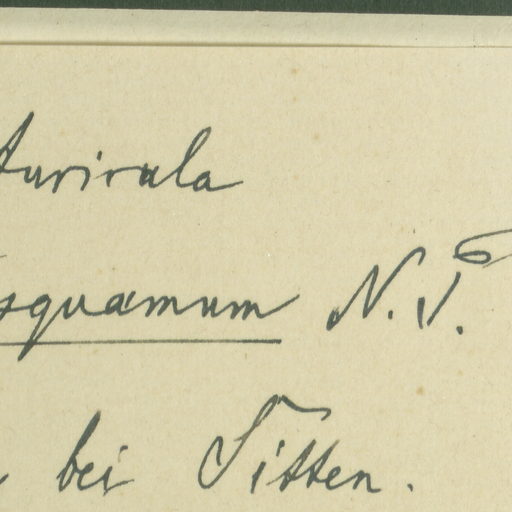 Auricula
squamum N. P.
bei Sitten.